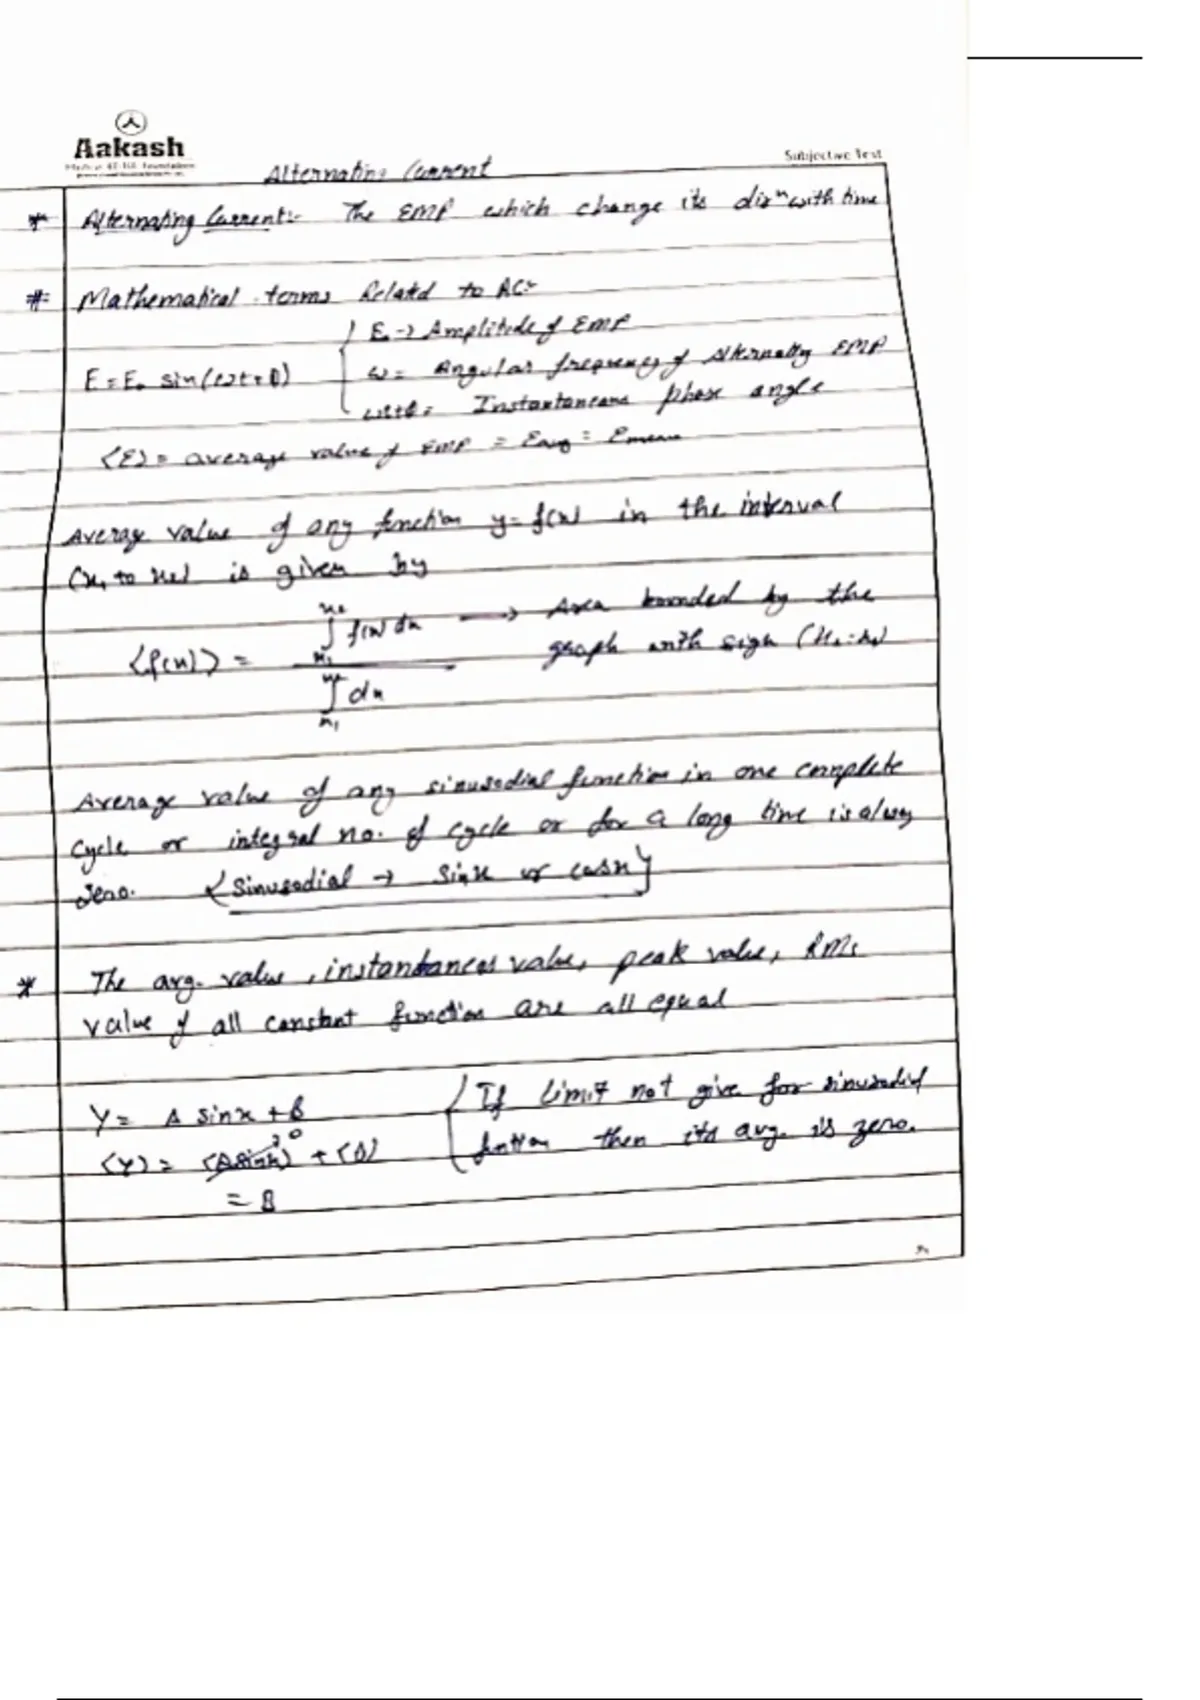 Aakash
Subjective Test
Alternating Current
* Alternating Current:- The EMF which change its dirⁿ with time
#- Mathematical terms Related to AC:-
E₀ → Amplitude of EMF
E = E₀ sin(ωt+Φ) ω = Angular frequency of Alternating EMF
ωt+Φ = Instantaneous phase angle
⟨E⟩ = average value of EMF = Eavg = Emean
Average value of any function y = f(x) in the interval
(x₁ to x₂) is given by
⟨f(x)⟩ = ∫ₓ₁ˣ² f(x) dx / ∫ₓ₁ˣ² dx → Area bounded by the
graph with sign
Average value of any sinusodial function in one complete
cycle or integral no. of cycle or for a long time is always
zero. {Sinusodial → Sinx or cosx}
* The avg. value, instantaneous value, peak value, RMS
value of all constant function are all equal
Y = A sinx + B { If Limit not give for sinusodial
⟨Y⟩ = ⟨A sinx⟩⁰ + ⟨B⟩ funtion then its avg. is zero.
= B